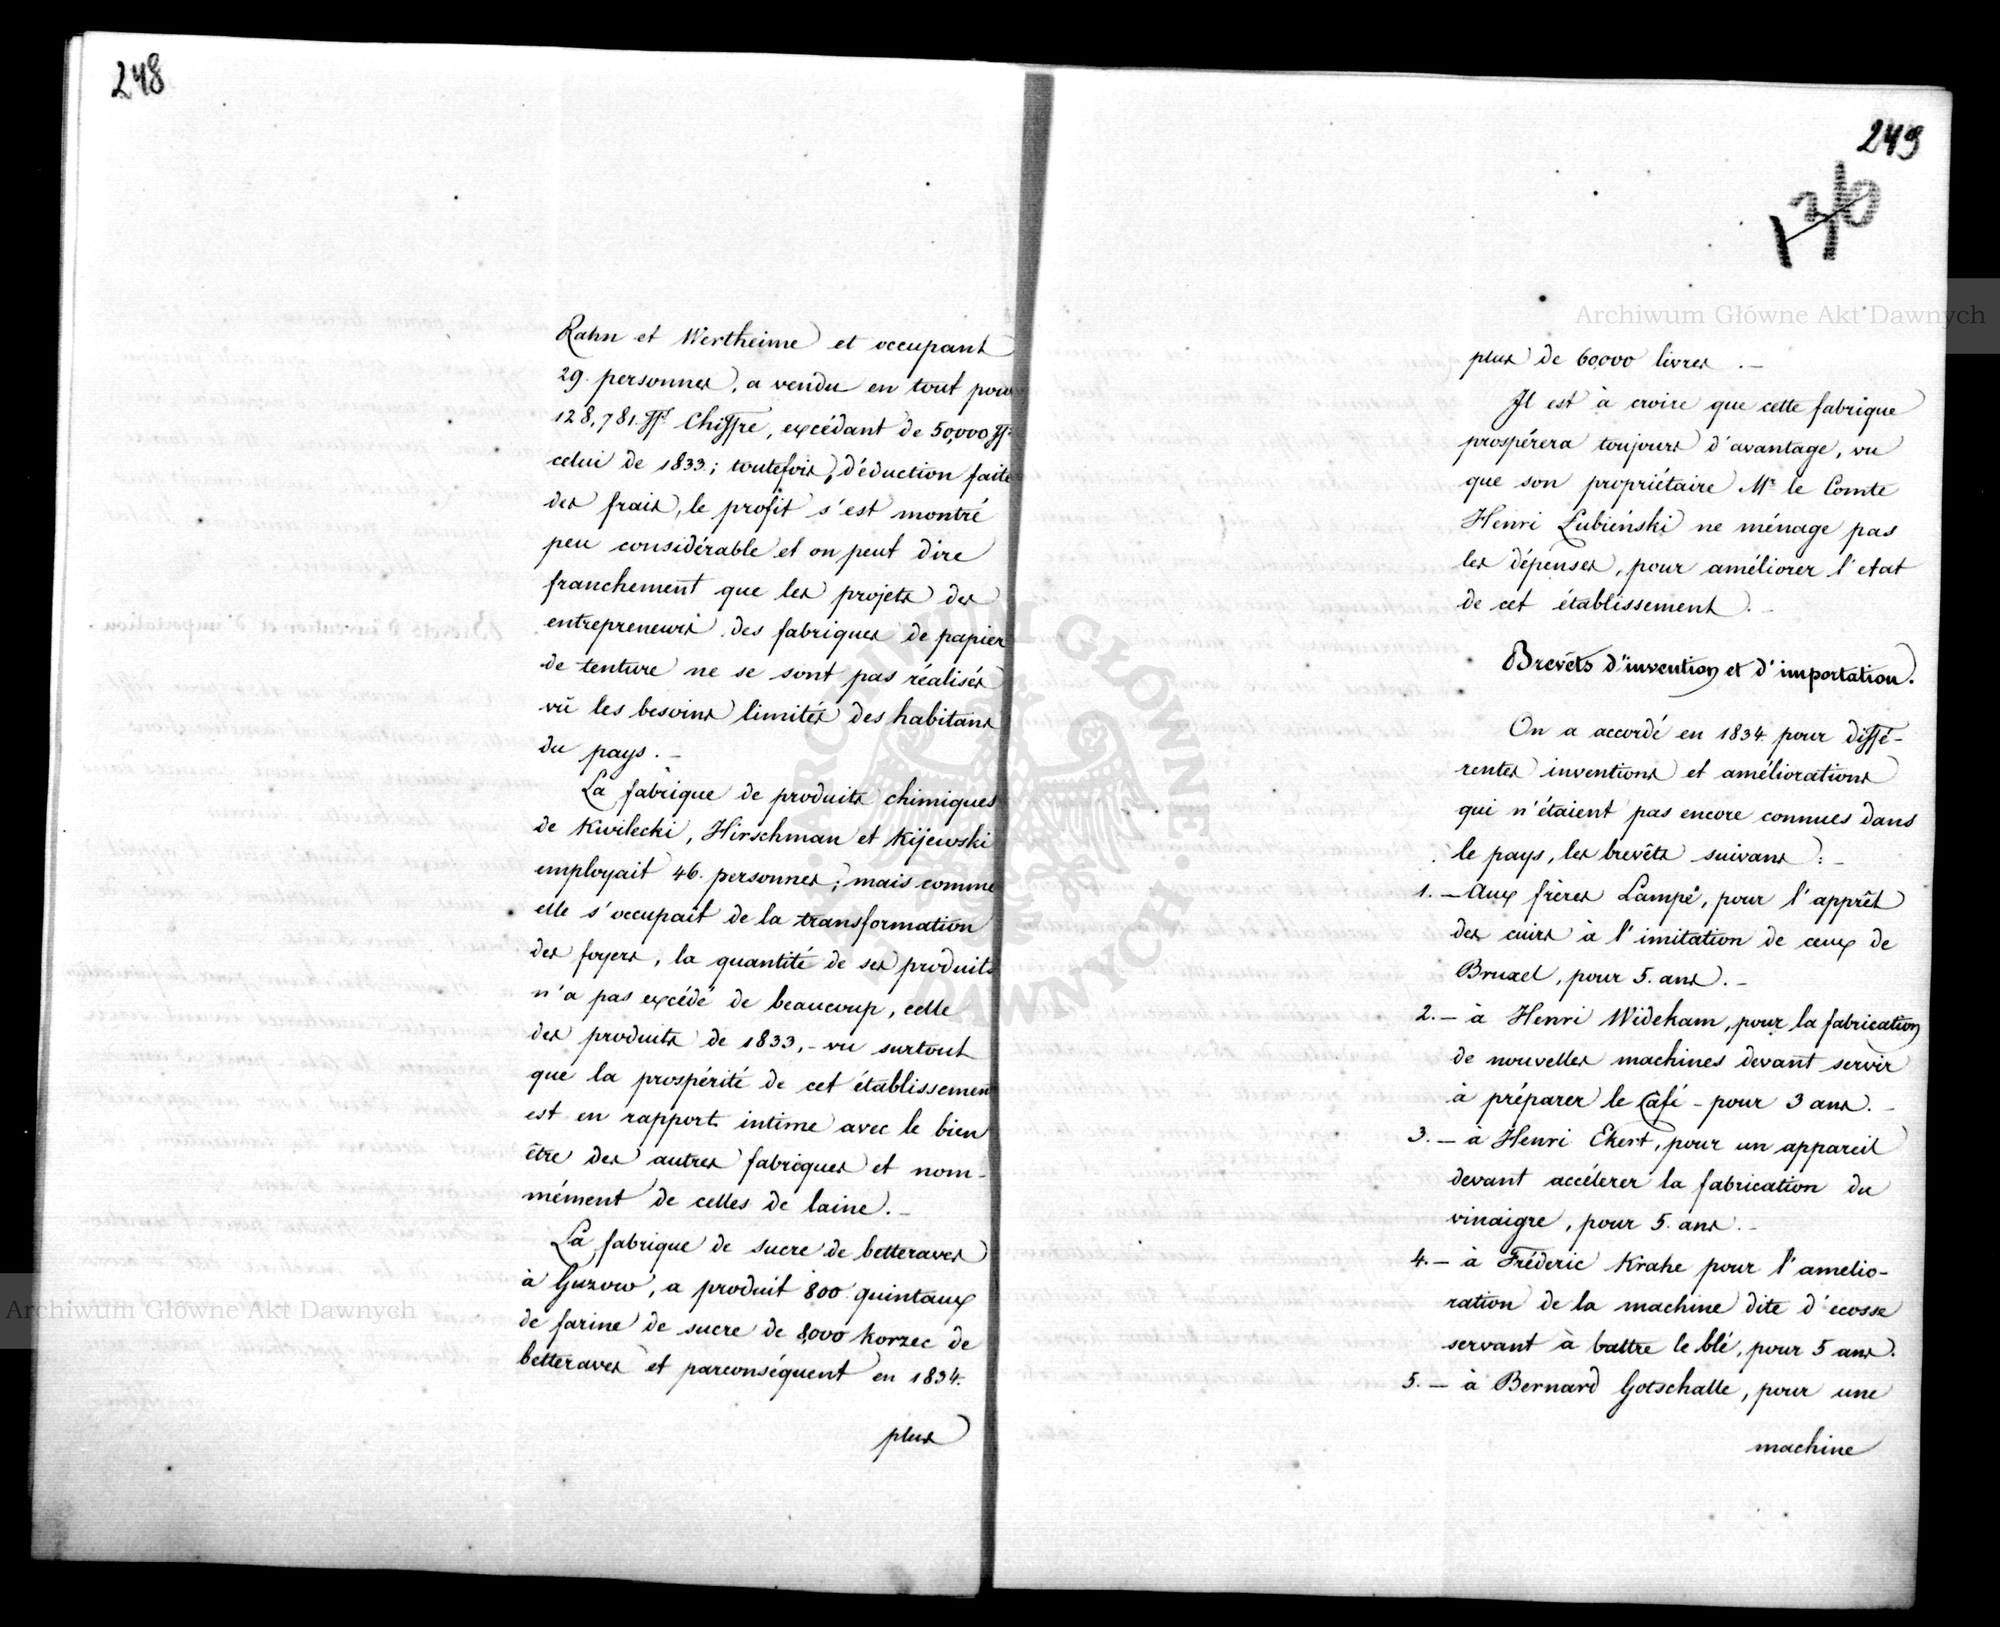 248
Rahn et Wertheime et occupant
29. personnes, a vendu en tout pour
128,781 ff. Chiffre, excédant de 50,000 ff.
celui de 1833.; toutefois, déduction faite
des frais, le profit s'est montré
peu considérable et on peut dire
franchement que les projets des
entrepreneurs des fabriques de papier
de tenture ne se sont pas réalisés
vû les besoins limités des habitans
du pays. –
La fabrique de produits chimiques
de Kwilecki, Hirschman et Kijewski
employait 46. personnes; mais comme
elle s'occupait de la transformation
des foyers, la quantité de ses produits
n'a pas excédé de beaucoup, celle
des produits de 1833, – vu surtout
que la prospérité de cet établissement
est en rapport intime avec le bien
être des autres fabriques et nom-
mément de celles de laine. –
La fabrique de sucre de betteraves
à Guzow, a produit 800 quintaux
de farine de sucre de 8,000 Korzec de
betteraves et parconséquent en 1834.
plus
249
170
plus de 60,000 livres. –
Il est à croire que cette fabrique
prospérera toujours d'avantage, vu
que son propriétaire Mr. le Comte
Henri Łubieński ne ménage pas
les dépenses, pour améliorer l'etat
de cet établissement. –
Brevêts d'invention et d'importation.
On a accordé en 1834 pour diffé-
rentes inventions et améliorations
qui n'étaient pas encore connues dans
le pays, les brevêts suivans: –
1. – Aux frères Lampé, pour l'apprêt
des cuirs à l'imitation de ceux de
Bruxel, pour 5. ans. –
2. – à Henri Widekam, pour la fabrication
de nouvelles machines devant servir
à préparer le Café – pour 3 ans. –
3. – à Henri Ekert, pour un appareil
devant accélerer la fabrication du
vinaigre, pour 5. ans. –
4. – à Fréderic Krahe pour l'amelio-
ration de la machine dite d'ecosse
servant à battre le blé, pour 5 ans.
5. – à Bernard Gotschalle, pour une
machine
Archiwum Główne Akt Dawnych
Archiwum Główne Akt Dawnych
ARCHIWUM GŁÓWNE AKT DAWNYCH